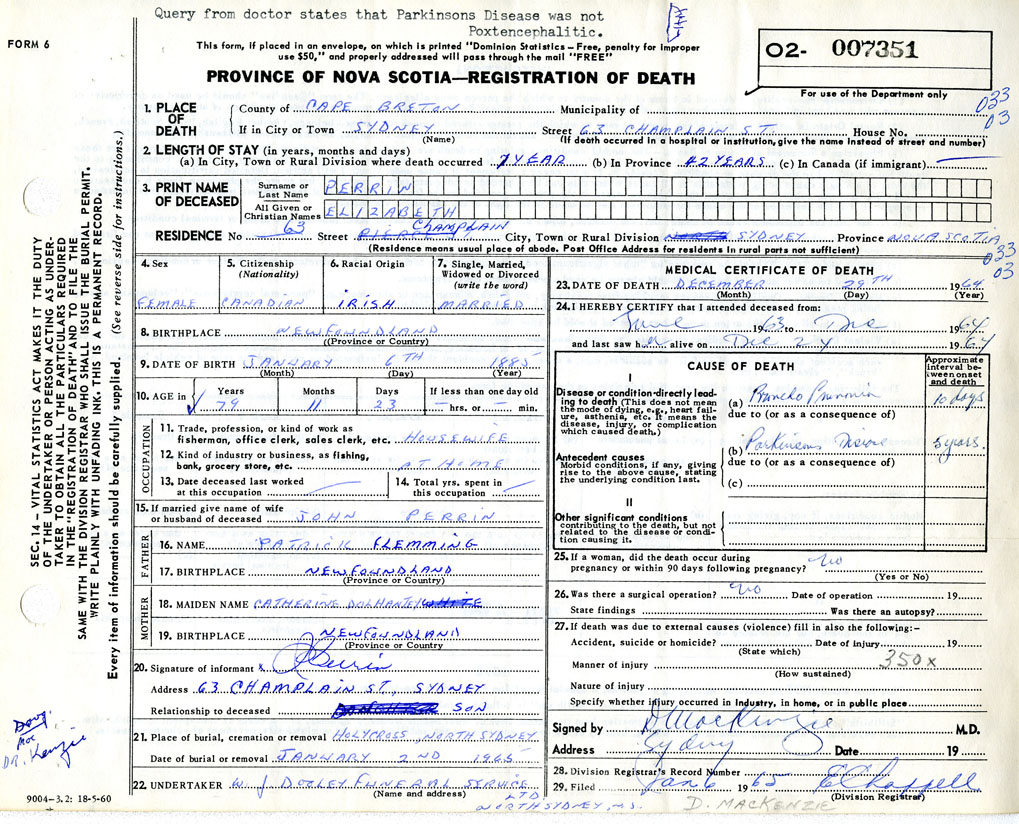 Query from doctor states that Parkinsons Disease was not
Poxtencephalitic.
FORM 6
This form, if placed in an envelope, on which is printed "Dominion Statistics – Free, penalty for improper
use $50," and properly addressed will pass through the mail "FREE"
O2- 007351
For use of the Department only
PROVINCE OF NOVA SCOTIA—REGISTRATION OF DEATH
033
03
1. PLACE OF DEATH
County of CAPE BRETON Municipality of
If in City or Town SYDNEY Street 63 CHAMPLAIN ST. House No.
(Name) (If death occurred in a hospital or institution, give the name instead of street and number)
2. LENGTH OF STAY (in years, months and days)
(a) In City, Town or Rural Division where death occurred 1 YEAR (b) In Province 42 YEARS (c) In Canada (if immigrant)
3. PRINT NAME OF DECEASED
Surname or Last Name PERRIN
All Given or Christian Names ELIZABETH
RESIDENCE No 63 Street CHAMPLAIN City, Town or Rural Division SYDNEY Province NOVA SCOTIA
(Residence means usual place of abode. Post Office Address for residents in rural parts not sufficient)
033
03
4. Sex 5. Citizenship (Nationality) 6. Racial Origin 7. Single, Married, Widowed or Divorced (write the word)
FEMALE CANADIAN IRISH MARRIED
8. BIRTHPLACE NEWFOUNDLAND
(Province or Country)
9. DATE OF BIRTH JANUARY 6TH 1885
(Month) (Day) (Year)
10. AGE in Years Months Days If less than one day old
79 11 23 hrs. or min.
OCCUPATION
11. Trade, profession, or kind of work as
fisherman, office clerk, sales clerk, etc. HOUSEWIFE
12. Kind of industry or business, as fishing,
bank, grocery store, etc. AT HOME
13. Date deceased last worked at this occupation
14. Total yrs. spent in this occupation
15. If married give name of wife
or husband of deceased JOHN PERRIN
FATHER
16. NAME PATRICK FLEMMING
17. BIRTHPLACE NEWFOUNDLAND
(Province or Country)
MOTHER
18. MAIDEN NAME CATHERINE DOLHANTEY WHITE
19. BIRTHPLACE NEWFOUNDLAND
(Province or Country)
20. Signature of informant x
Address 63 CHAMPLAIN ST, SYDNEY
Relationship to deceased SON
21. Place of burial, cremation or removal HOLYCROSS, NORTH SYDNEY
Date of burial or removal JANUARY 2ND 1965
22. UNDERTAKER W J DOOLEY FUNERAL SERVICE LTD
(Name and address)
NORTH SYDNEY, N.S.
MEDICAL CERTIFICATE OF DEATH
23. DATE OF DEATH DECEMBER 29TH 1964
(Month) (Day) (Year)
24. I HEREBY CERTIFY that I attended deceased from:
June 1963 to Dec 1964
and last saw her alive on Dec 24 1964
CAUSE OF DEATH
Approximate interval between onset and death
I
Disease or condition directly leading to death (This does not mean the mode of dying, e.g., heart failure, asthenia, etc. It means the disease, injury, or complication which caused death.)
(a) 10 days
due to (or as a consequence of)
Antecedent causes
Morbid conditions, if any, giving rise to the above cause, stating the underlying condition last.
(b) Parkinsons Disease 5 years.
due to (or as a consequence of)
(c)
II
Other significant conditions
contributing to the death, but not related to the disease or condition causing it.
25. If a woman, did the death occur during
pregnancy or within 90 days following pregnancy? no
(Yes or No)
26. Was there a surgical operation? no Date of operation 19
State findings Was there an autopsy?
27. If death was due to external causes (violence) fill in also the following:–
Accident, suicide or homicide? Date of injury 19
(State which)
350x
Manner of injury
(How sustained)
Nature of injury
Specify whether injury occurred in Industry, in home, or in public place
Signed by D. MacKenzie M.D.
Address Sydney Date 19
28. Division Registrar's Record Number
29. Filed Jan 6 1965 E Chappell
(Division Registrar)
D. MACKENZIE
SEC. 14 – VITAL STATISTICS ACT MAKES IT THE DUTY
OF THE UNDERTAKER OR PERSON ACTING AS UNDER-
TAKER TO OBTAIN ALL THE PARTICULARS REQUIRED
IN THE "REGISTRATION OF DEATH" AND TO FILE THE
SAME WITH THE DIVISION REGISTRAR WHO SHALL ISSUE THE BURIAL PERMIT.
WRITE PLAINLY WITH UNFADING INK. THIS IS A PERMANENT RECORD.
Every item of information should be carefully supplied. (See reverse side for instructions.)
Mac
DR. Kenzie
9004-3.2: 18-5-60